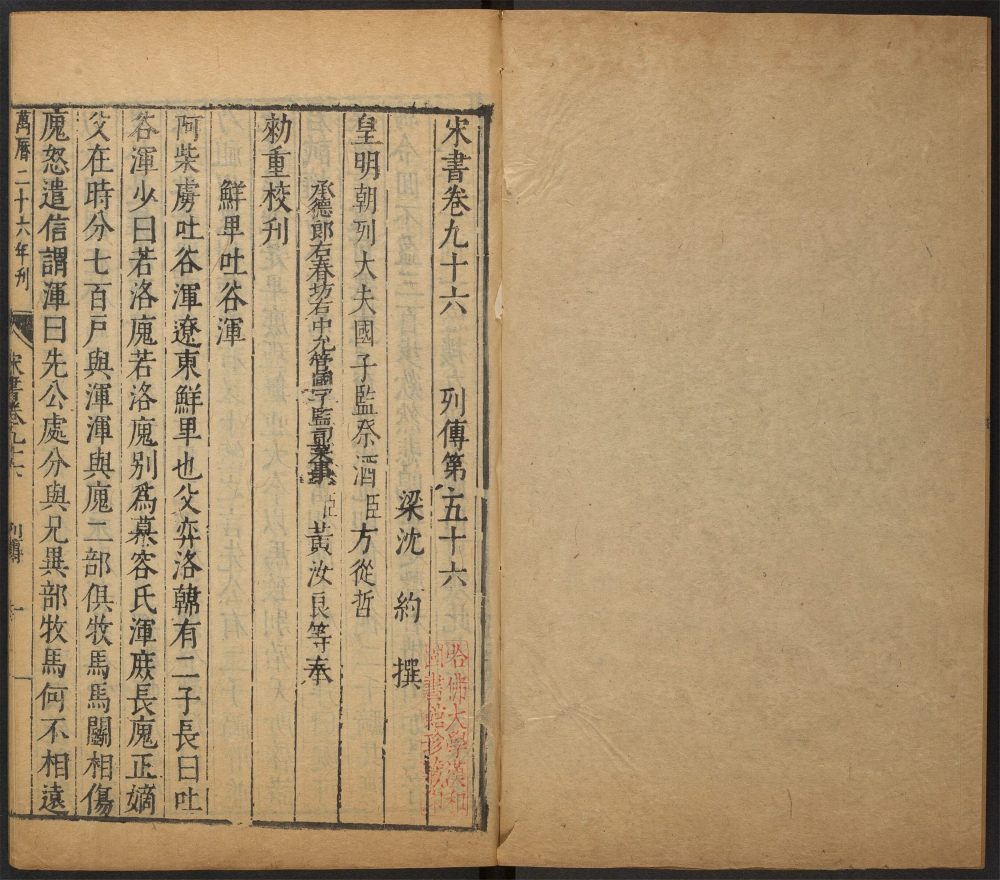 宋書卷九十六　列傳第五十六
梁沈約　撰
皇明朝列大夫國子監祭酒臣方從哲
承德郎右春坊右中允管國子監司業事臣黃汝良等奉
勑重校刊
鮮卑吐谷渾
阿柴虜吐谷渾遼東鮮卑也父弈洛韓有二子長曰吐
谷渾少曰若洛廆若洛廆別爲慕容氏渾庶長廆正嫡
父在時分七百戶與渾渾與廆二部俱牧馬馬鬬相傷
廆怒遣信謂渾曰先公處分與兄異部牧馬何不相遠
萬曆二十六年刋
宋書卷九十六
列傳
一
哈佛大學漢和
圖書館珍藏印